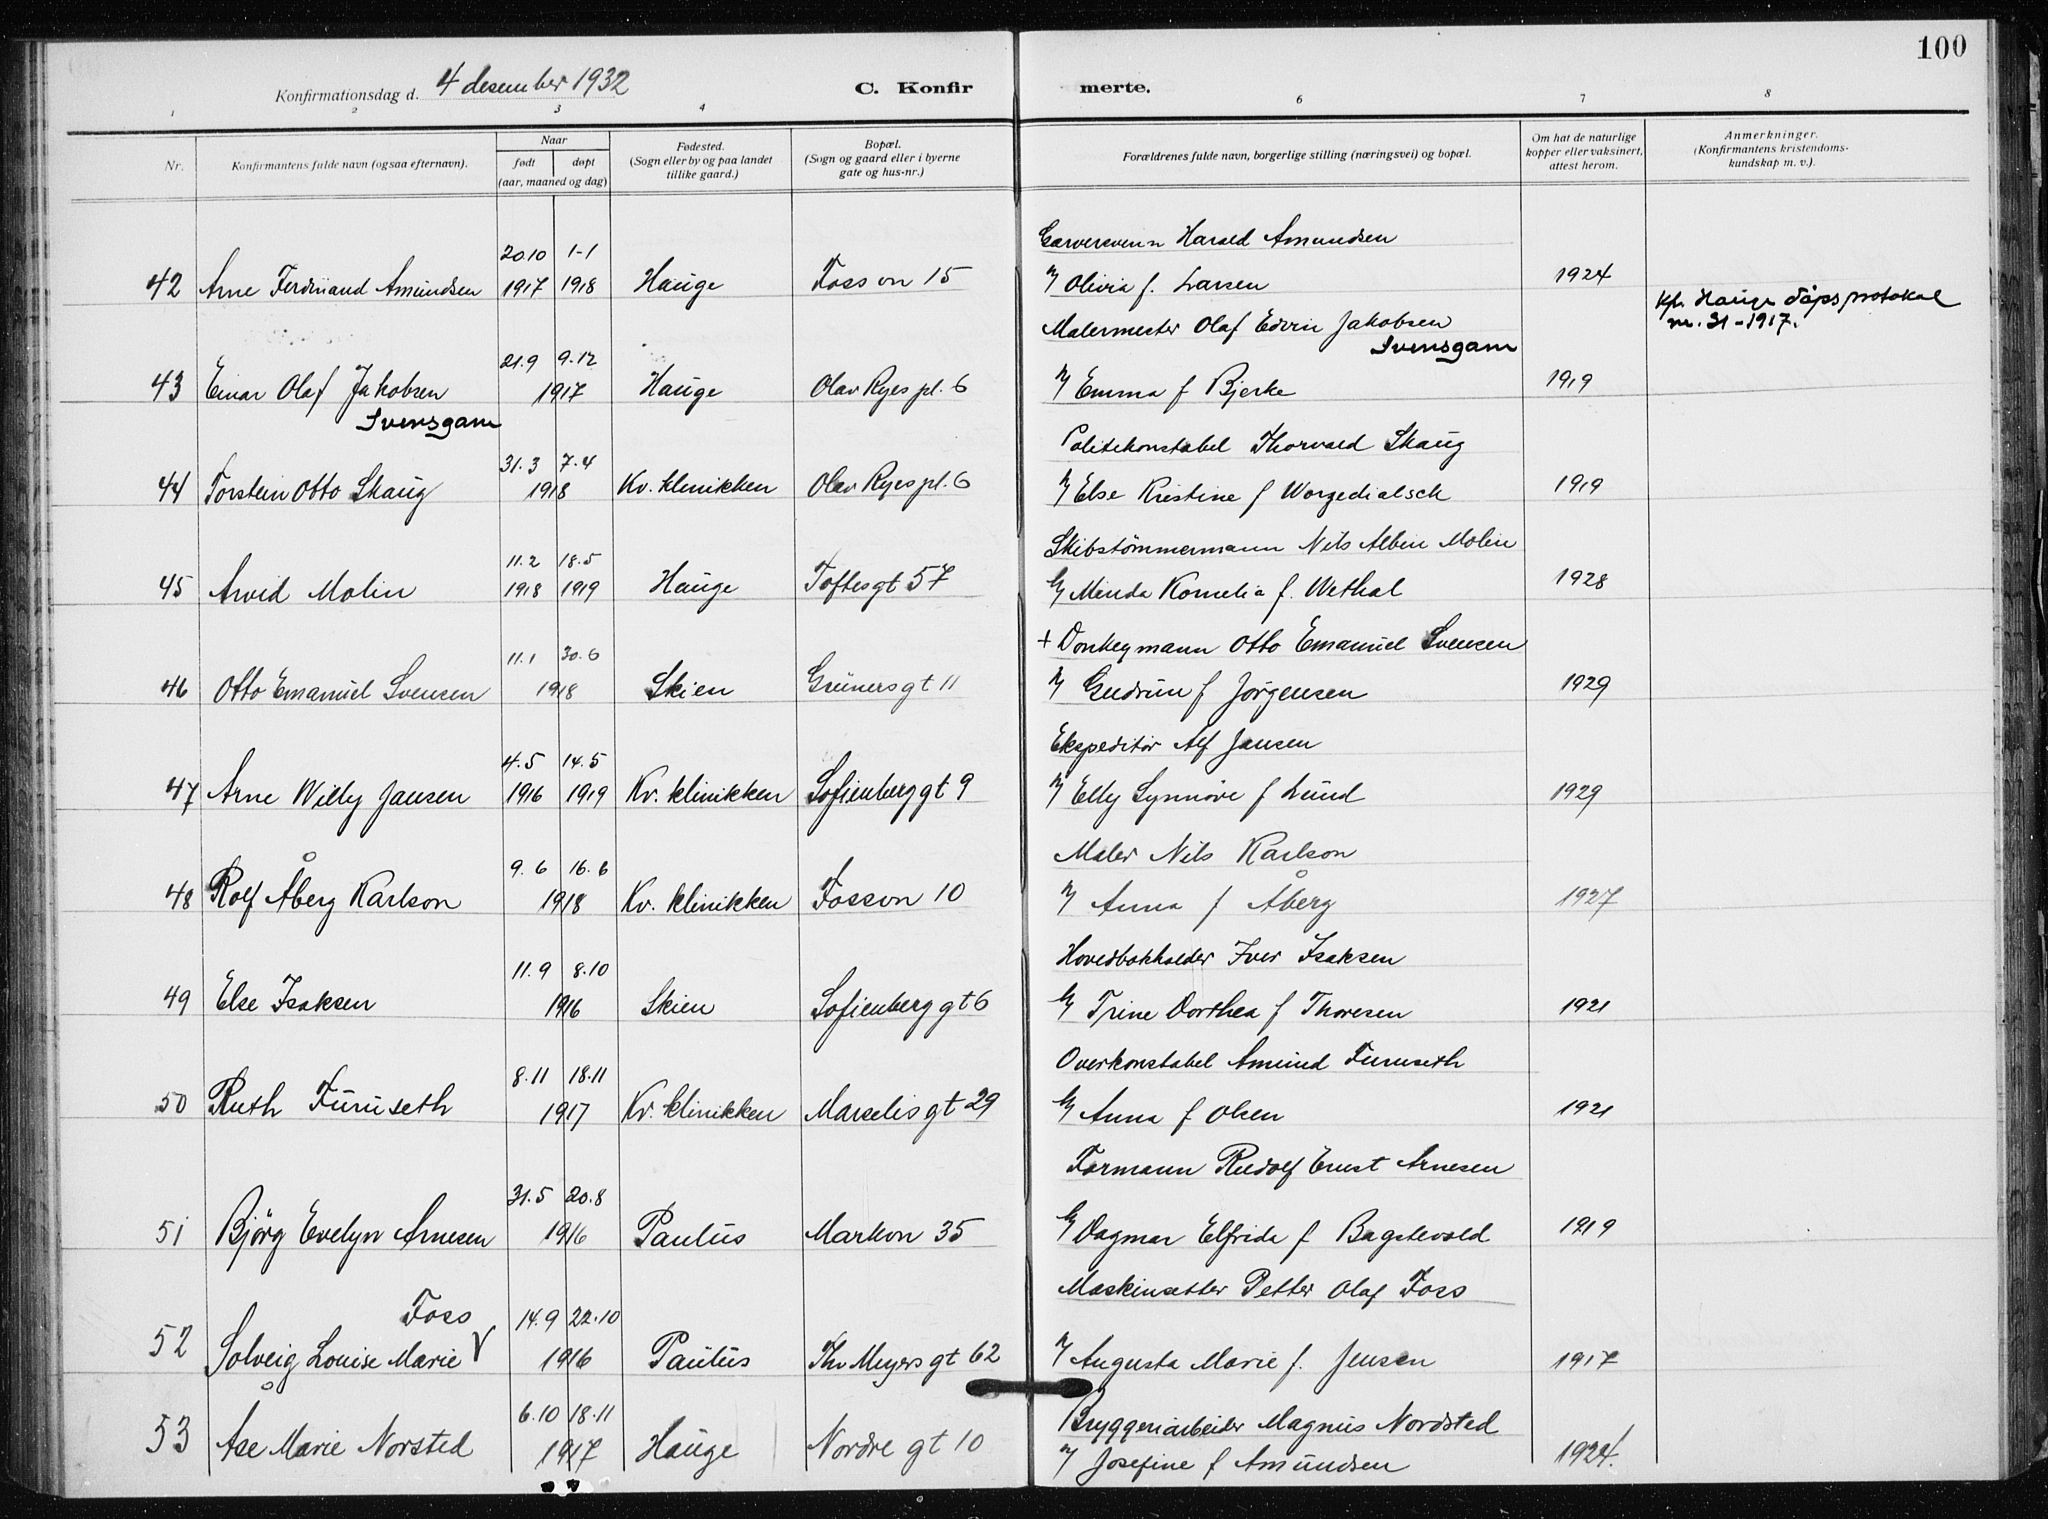 100
Konfirmationsdag d. 4 desember 1932
C. Konfir merte.
1 2 3 4 6 7 8
Nr.
Konfirmantens fulde navn (ogsaa efternavn).
Naar
født døpt
(aar, maaned og dag)
Fødested.
(Sogn eller by og paa landet
tillike gaard.)
Bopæl.
(Sogn og gaard eller i byerne
gate og hus-nr.)
Forældrenes fulde navn, borgerlige stilling (næringsvei) og bopæl.
Om hat de naturlige
kopper eller vaksinert,
attest herom.
Anmerkninger.
(Konfirmantens kristendoms-
kundskap m. v.).
20.10 1-1 Garversvenn Harald Amundsen
42 Arne Ferdinand Amundsen 1917 1918 Hauge Foss vn 15 Olivia f. Larsen 1924
Kfr. Hauge dåpsprotokol
nr. 31-1917.
Malermester Olaf Edvin Jakobsen
Svensgam
21.9 9.12
43 Einar Olaf Jakobsen 1917 Hauge Olav Ryes pl. 6 Emma f Bjerke 1919
Svensgam
31.3 7.4 Politikonstabel Thorvald Skaug
44 Torstein Otto Skaug 1918 Kv. klinikken Olav Ryes pl. 6 Else Kristine f Worzedialsck 1919
11.2 18.5 Skibstömmermann Nils Albin Molin
45 Arvid Molin 1918 1919 Hauge Toftesgt 57 Minda Kornelia f. Wethal 1928
11.1 30.6 + Donkeymann Otto Emanuel Svensen
46 Otto Emanuel Svensen 1918 Skien Grünersgt 11 Gudrun f Jørgensen 1929
4.5 14.5 Ekspeditör Alf Jansen
47 Arne Willy Jansen 1916 1919 Kv. klinikken Sofienberggt 9 Elly Synnöve f Lund 1929
9.6 16.6 Maler Nils Karlson
48 Rolf Åberg Karlson 1918 Kv. klinikken Fossvn 10 Anna f Åberg 1927
11.9 8.10 Hovedbokholder Iver Isaksen
49 Else Isaksen 1916 Skien Sofienberg gt 6 Trine Dorthea f Thoresen 1921
8.11 18.11 Overkonstabel Amund Furuseth
50 Ruth Furuseth 1917 Kv. klinikken Marselis gt 29 Anna f Olsen 1921
31.5 20.8 Formann Rudolf Ernst Arnesen
51 Björg Evelyn Arnesen 1916 Paulus Markvn 35 Dagmar Elfrida f Bagstevold 1919
Foss 14.9 22.10 Maskinsetter Petter Olaf Foss
52 Solveig Louise Marie V 1916 Paulus Thv Meyers gt 62 Augusta Marie f. Jensen 1917
6.10 18.11 Bryggeriarbeider Magnus Nordsted
53 Åse Marie Norsted 1917 Hauge Nordre gt 10 Josefine f Amundsen 1924.